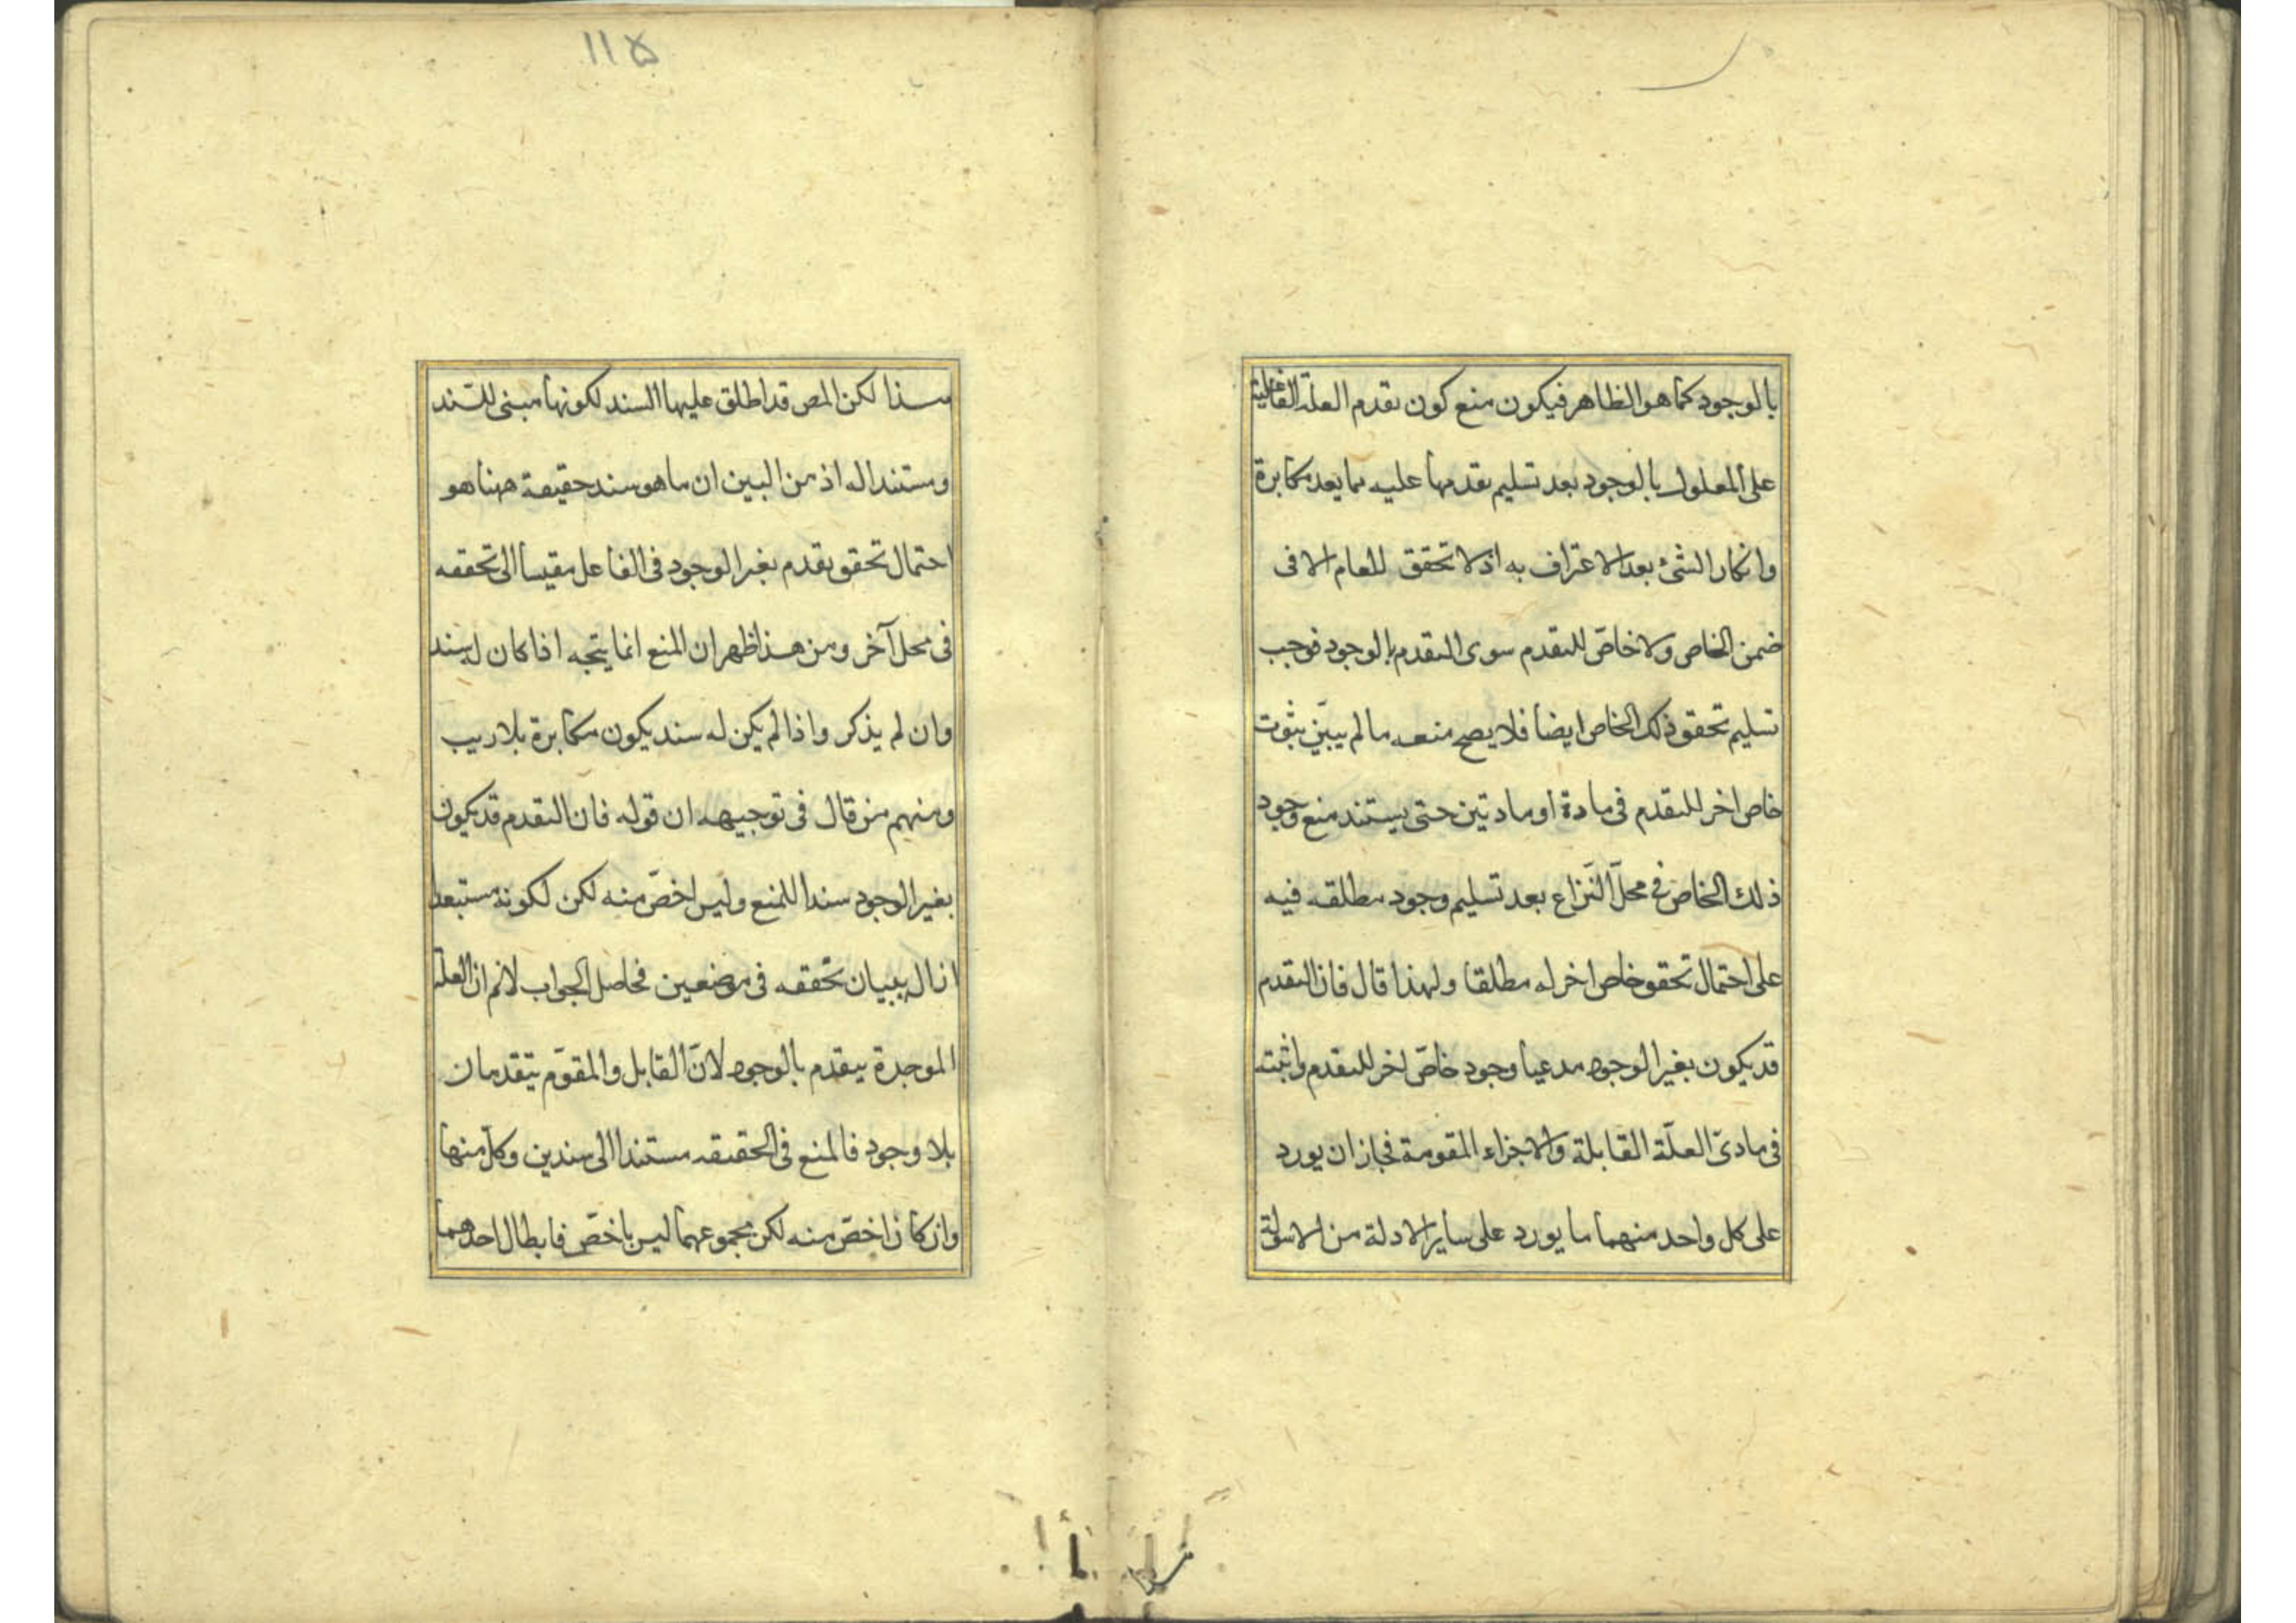 بالوجود كما هو الظاهر فيكون منع كون تقدم العلة الفاعلية
على المعلول بالوجود بعد تسليم تقدمها عليه مما يعد مكابرة
وانكار الشئ بعد الاعتراف به اذ لا تحقق للعام الا فى
ضمن الخاص ولا خاصّ للتقدم سوى التقدم بالوجود فوجب
تسليم تحقق ذلك الخاص ايضا فلا يصح منعه ما لم يبيّن بثبوت
خاص اخر للتقدم فى مادة او مادتين حتى يستند منع وجود
ذلك الخاص فى محلّ النّزاع بعد تسليم وجود مطلقه فيه
على احتمال تحقق خاص اخر له مطلقا ولهذا قال فان التقدم
قد يكون بغير الوجود مدعيا وجود خاصّ اخر للتقدم واثبته
فى مادتى العلّة القابلة والاجزاء المقومة فجاز ان يورد
على كل واحد منهما ما يورد على ساير الادلة من الاسولة
١١٥
سندا لكن المص قد اطلق عليها السند لكونها مبنى للسّند
ومستندا له اذ من البين ان ما هو سند حقيقة ههنا هو
احتمال تحقق تقدم بغير الوجود فى الفاعل مقيسا الى تحققه
فى محل آخر ومن هذا ظهر ان المنع انما يتجه اذا كان له سند
وان لم يذكر واذا لم يكن له سند يكون مكابرة بلا ريب
ومنهم من قال فى توجيهه ان قوله فان التقدم قد يكون
بغير الوجود سندا للمنع وليس اخصّ منه لكن لكونه مستبعدا
ازاله ببيان تحققه فى موضعين فحاصل الجواب لانم ان العلة
الموجدة يتقدم بالوجود لانّ القابل والمقوّم يتقدمان
بلا وجود فالمنع فى الحقيقه مستندا الى سندين وكلّ منها
وان كان اخصّ منه لكن مجموعهما ليس باخصّ فابطال احدهما